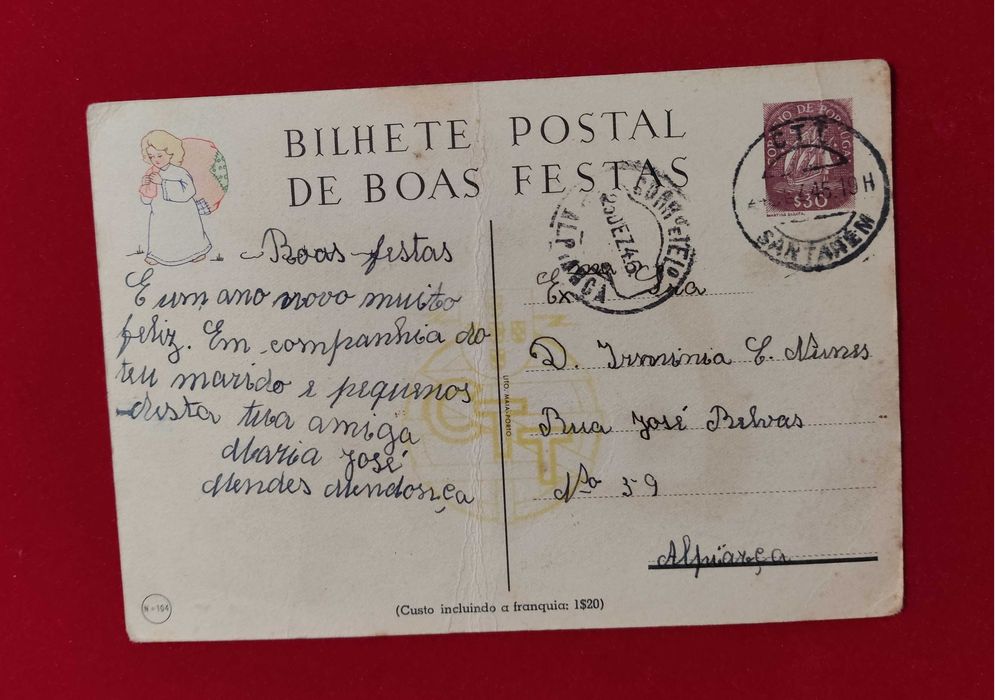 BILHETE POSTAL
DE BOAS FESTAS
CORREIO DE PORTUGAL
$30
CTT
45-19H
SANTARÉM
25DEZ45
ALPIARÇA
Boas festas
E um ano novo muito
feliz. Em companhia do
teu marido e pequenos
desta tua amiga
Maria José
Mendes Mendonça
CTT
LITO. MAIA-PORTO
Exma Sra
D. Irminia C. Nunes
Rua José Relvas
No 59
Alpiarça
N-104
(Custo incluindo a franquia: 1$20)